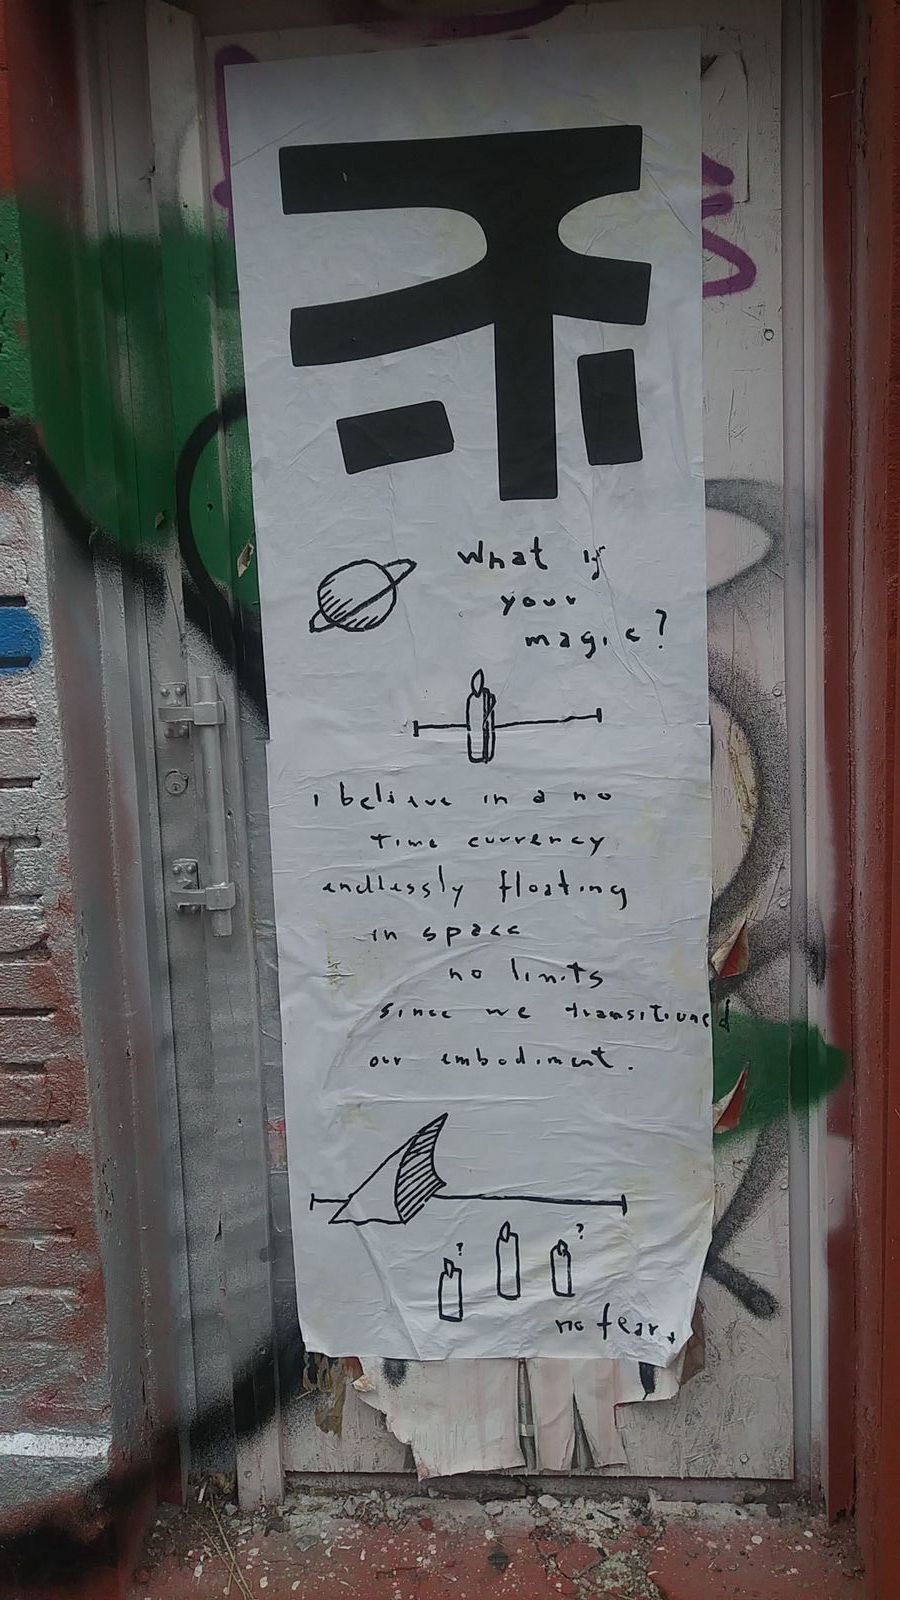 What is
your
magic?
i believe in a no
time currency
endlessly floating
in space
no limits
since we transitioned
our embodiment.
?
?
no fear.